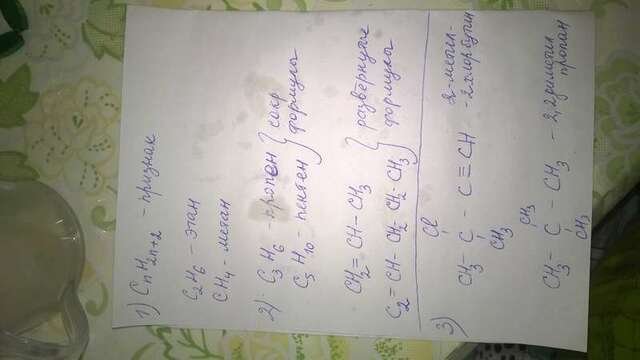 1) CnH2n+2 - признак
C2H6 - этан
CH4 - метан
2). C3H6 - пропен } сокр
C5H10 - пентен } формулы
CH2=CH-CH3 } развёрнутые
C2=CH-CH2-CH2-CH3 } формулы
3) Cl
CH3-C-C≡CH 2-метил-
CH3 -2хлорбутин
CH3
CH3-C-CH3 - 2,2диметил
CH3 пропан